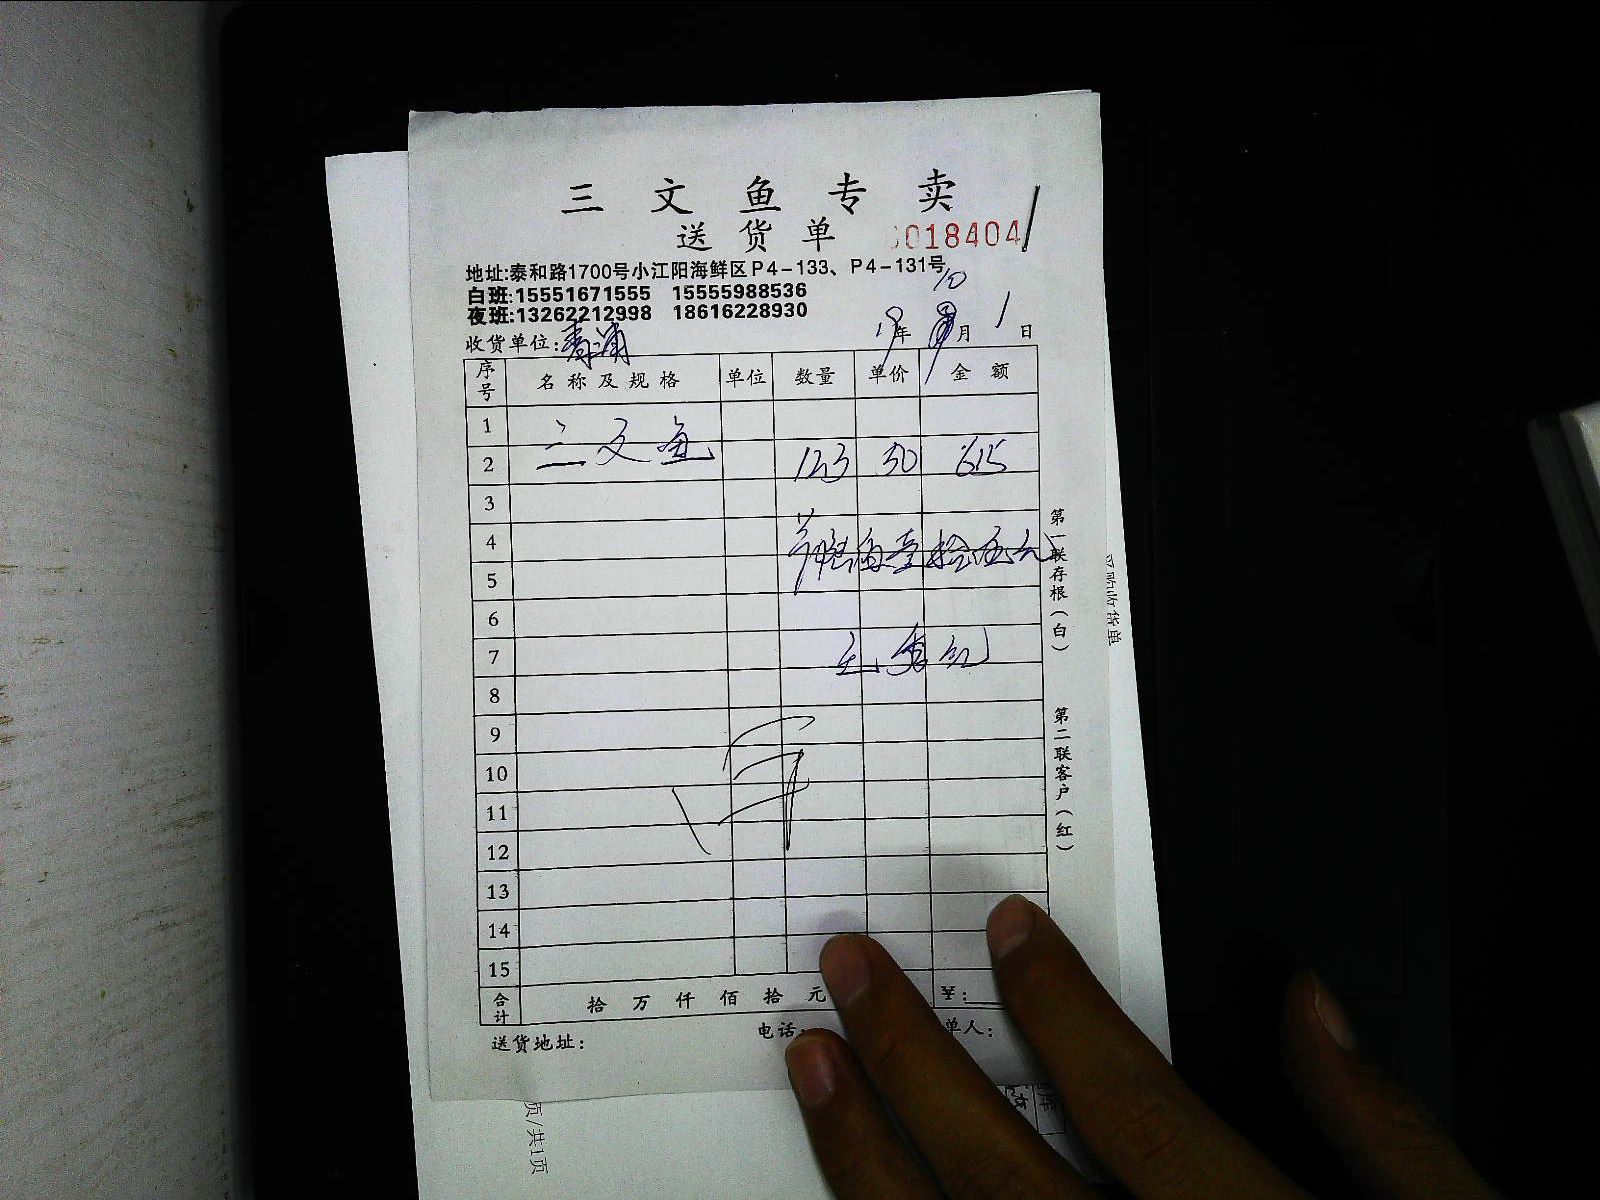 三文鱼专卖
送货单 0018404
地址:泰和路1700号小江阳海鲜区P4-133、P4-131号
白班:15551671555 15555988536
夜班:13262212998 18616228930
10
收货单位:青浦 19年 月 1日
序号 名称及规格 单位 数量 单价 金额
1
2 三文鱼 123 50 615
3
4
5
6
7
8
9
10
11
12
13
14
15
合计 拾 万 仟 佰 拾 元 ¥:
送货地址: 电话: 单人:
第一联存根(白)
第二联客户(红)
收货单
页/共1页